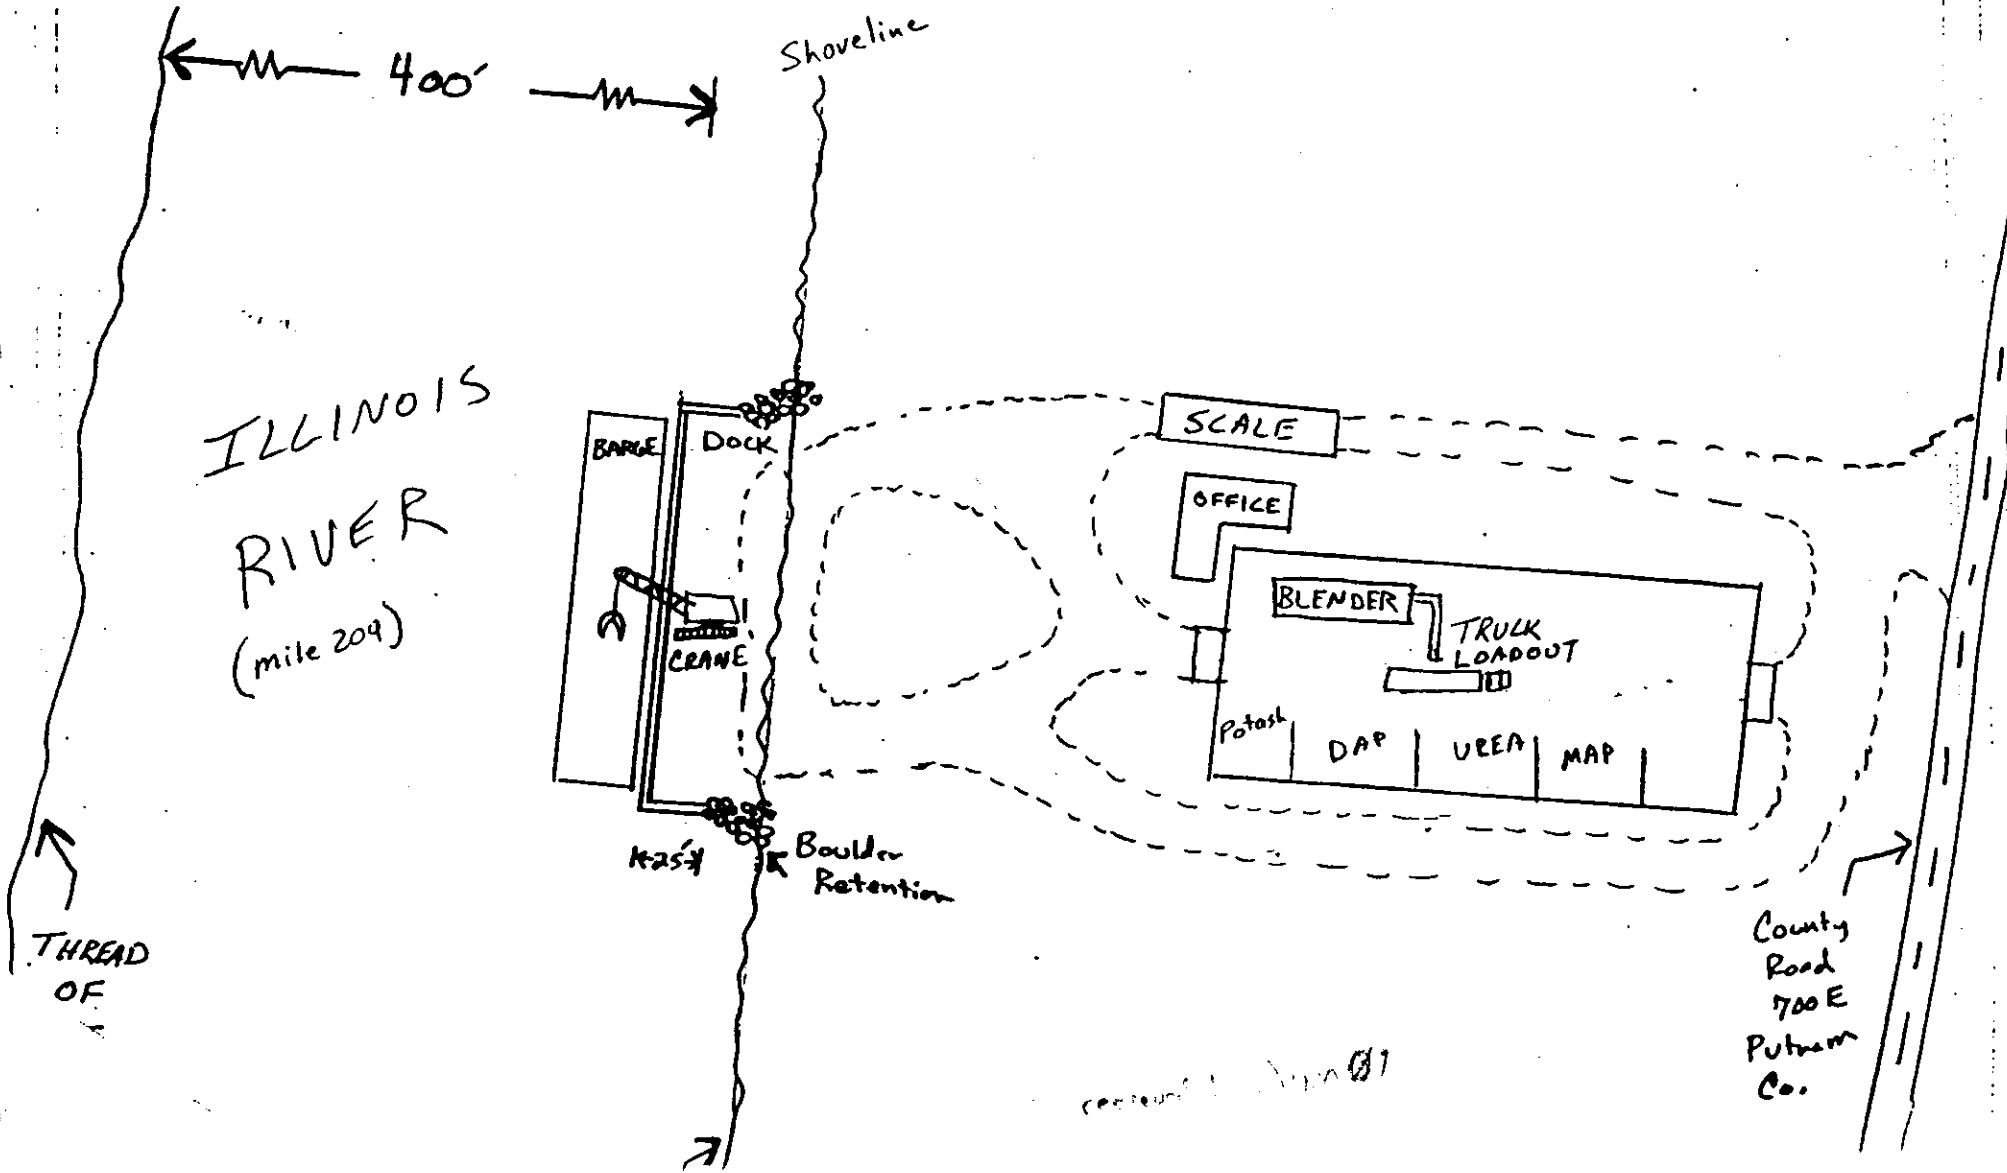 Shoreline
400'
ILLINOIS
RIVER
(mile 209)
BARGE
DOCK
CRANE
SCALE
OFFICE
BLENDER
TRUCK
LOADOUT
Potash
DAP
UREA
MAP
25'
Boulder
Retention
THREAD
OF
County
Road
700E
Putnam
Co.